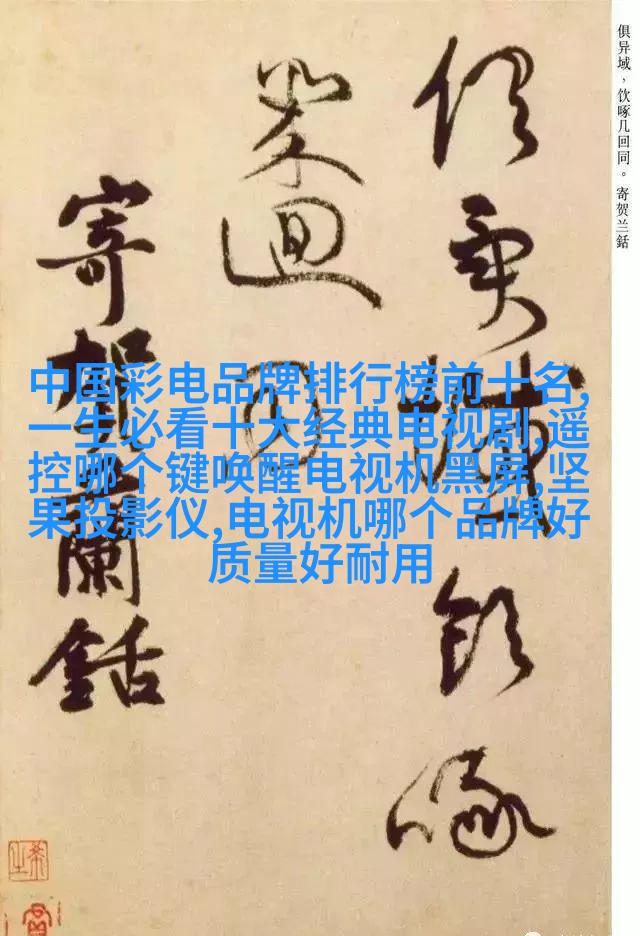 俱异域，饮啄几回同。寄贺兰銛
俱異域飲啄
幾迴同
寄賀蘭銛
中国彩电品牌排行榜前十名,
一生必看十大经典电视剧,遥
控哪个键唤醒电视机黑屏,坚
果投影仪,电视机哪个品牌好
质量好耐用